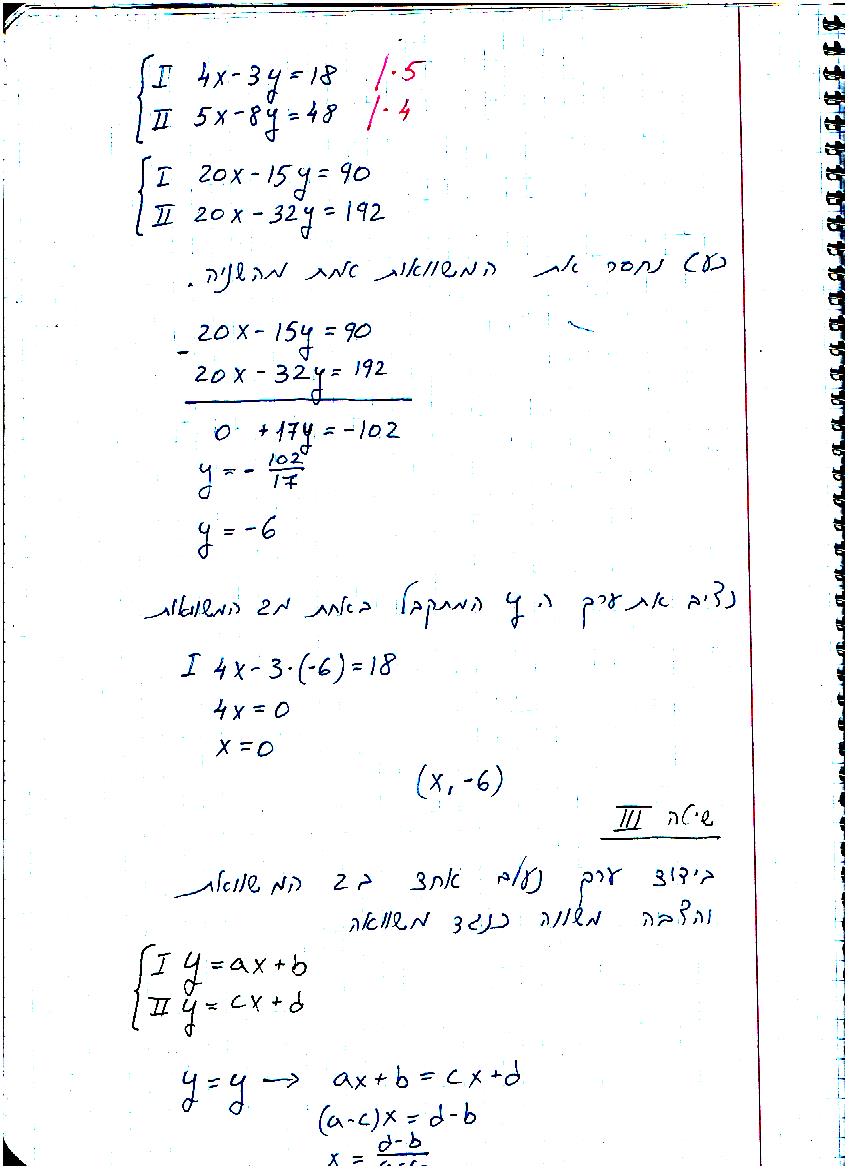 I 4x-3y=18 /·5
II 5x-8y=48 /·4
I 20x-15y=90
II 20x-32y=192
כעת נחסר את המשוואות אחת מהשניה.
20x-15y=90
- 20x-32y=192
0 +17y=-102
y=-102/17
y=-6
נציב את ערך ה y המתקבל באחת מ2 המשוואות
I 4x-3·(-6)=18
4x=0
x=0
(x,-6)
שיטה III
בידוד ערך נעלם אחד ב2 המשוואות
והצבה משווה כנגד משוואה
I y=ax+b
II y=cx+d
y=y → ax+b=cx+d
(a-c)x=d-b
x = d-b